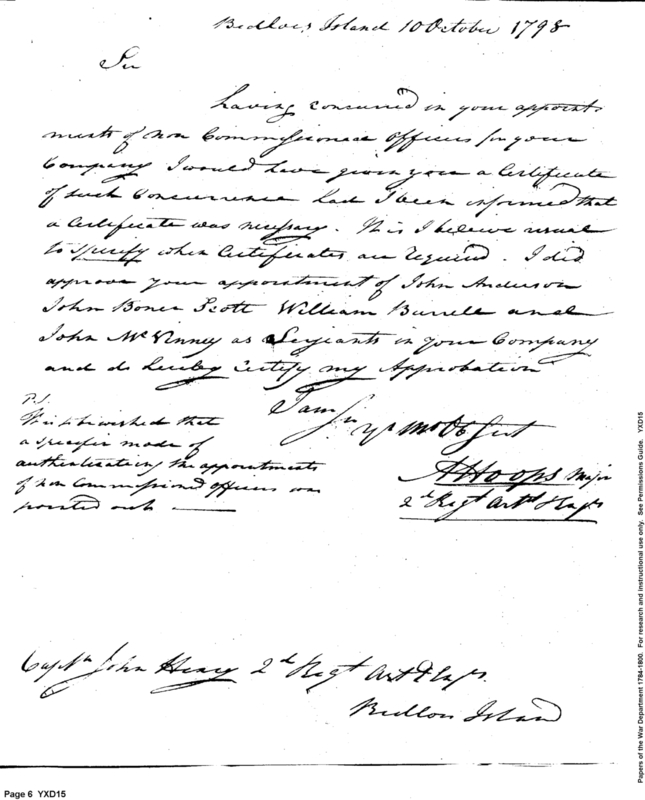 Bedloes Island 10 October 1798
Sir
having concurred in your appoint-
ments of non Commissioned officers for your
Company I would have given you a Certificate
of such Concurrence had I been informed that
a Certificate was necessary. It is I believe usual
to specify when Certificates are required. I did
approve your appointment of John Anderson
John Boner Scott William Burrell and
John McKinney as Serjeants in your Company
and do hereby Certify my Approbation
I am Sir
Yr Mo Ob Sert
AHoops Major
2d Regt Artts & Engrs
P.S.
It is to be wished that
a specific mode of
authenticating the appointments
of non Commissioned officers was
pointed out
Captn John Henry 2d Regt Art & Engrs
Bedloes Island
Page 6 YXD15
Papers of the War Department 1784-1800. For research and instructional use only. See Permissions Guide. YXD15